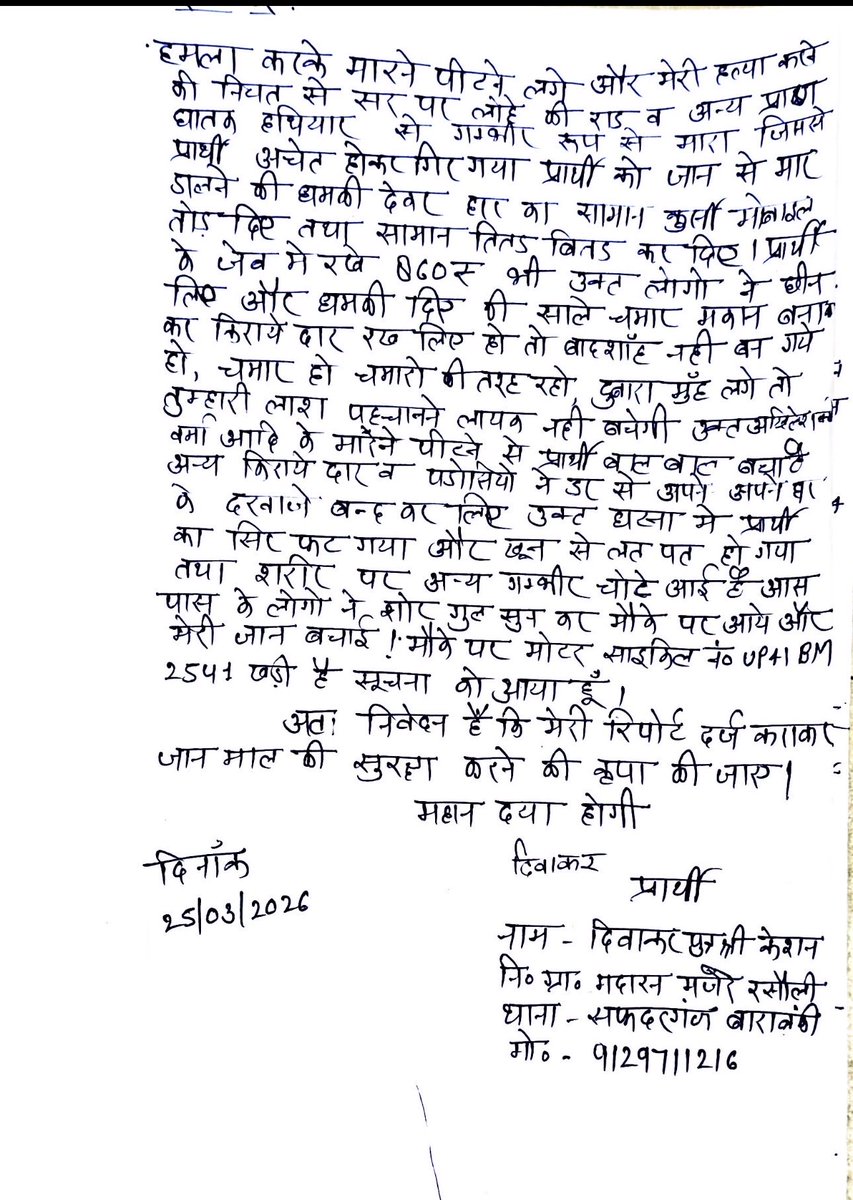 हमला करके मारने पीटने लगे और मेरी हत्या करने
की नियत से सर पर लोहे की राड व अन्य प्राण
घातक हथियार से गम्भीर रूप से मारा जिससे
प्रार्थी अचेत होकर गिर गया प्रार्थी को जान से मार
डालने की धमकी देकर का सामान कुर्सी मोबाइल
तोड़ दिए तथा सामान तितड बितड कर दिए। प्रार्थी
के जेब मे रखे 860रू भी उक्त लोगो ने छीन
लिए और धमकी दिए की साले चमार मकान बना
कर किराये दार रख लिए हो तो बादशाँह नही बन गये
हो, चमार हो चमारो की तरह रहो, दुबारा मुँह लगे तो
तुम्हारी लाश पहचानने लायक नही बचेगी उक्त
वर्मा आदि के मारने पीटने से प्रार्थी बाल बाल बचा है
अन्य किराये दार व पडोसियो ने डर से अपने अपने घर
के दरवाजे बन्द कर लिए उक्त घटना मे प्रार्थी
का सिर फट गया और खून से लत पत हो गया
तथा शरीर पर अन्य गम्भीर चोटे आई है आस
पास के लोगो ने शोर गुल सुन कर मौके पर आये और
मेरी जान बचाई ! मौके पर मोटर साइकिल नं० UP41 BM
2541 खड़ी है सूचना को आया हूँ।
अतः निवेदन है कि मेरी रिपोर्ट दर्ज कराकर
जान माल की सुरक्षा करने की कृपा की जाए।
महान दया होगी
दिनाँक
25/03/2026
दिवाकर
प्रार्थी
नाम - दिवाकर पुत्र श्री केशन
नि० ग्रा० मदारन मजरे रसौली
थाना - सफदरगंज बाराबंकी
मो० - 9129711216